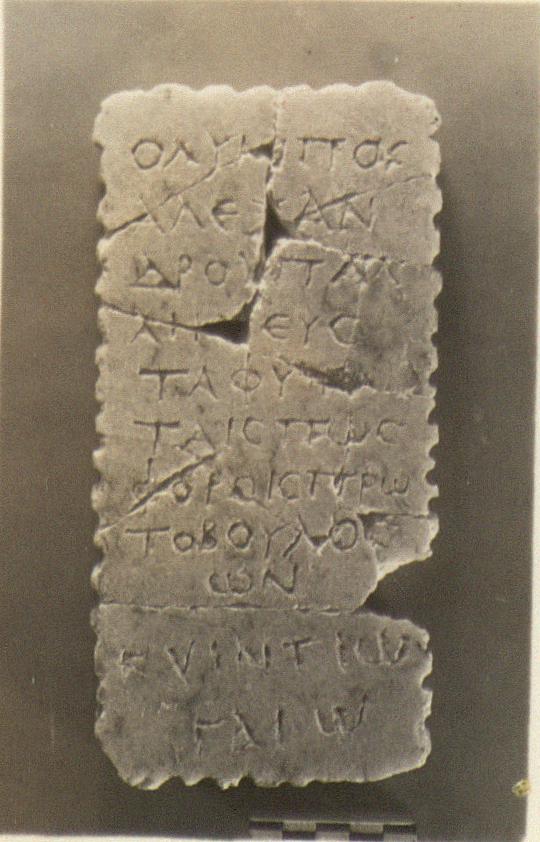 ΟΛΥΜΠΟΣ
ΑΛΕΞΑΝ
ΔΡΟΥΠΑΛ
ΛΗΝΕΥϹ
ΤΑΦΥΤΑ
ΦΟΡΟΙϹΠΡΩ
ΤΟΒΟΥΛΟ
ΩΝ
ΚΥΙΝΤΙΩ
ΓΑΙΩ